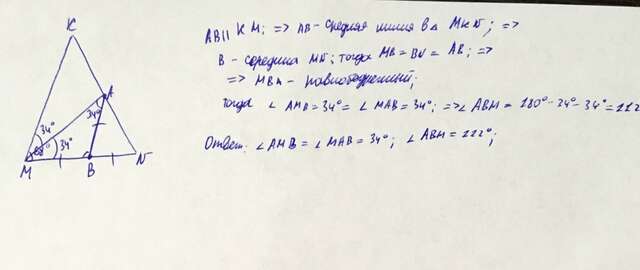 K
AB || KM; => AB - средняя линия в △ MKN; =>
B - середина MN; тогда MB = BN = AB; =>
=> MBA - равнобедренный;
тогда ∠ AMB = 34° = ∠ MAB = 34°; => ∠ ABM = 180° - 34° - 34° = 112
Ответ: ∠ AMB = ∠ MAB = 34°; ∠ ABM = 112°;
A
34°
34°
68°
34°
M
B
N